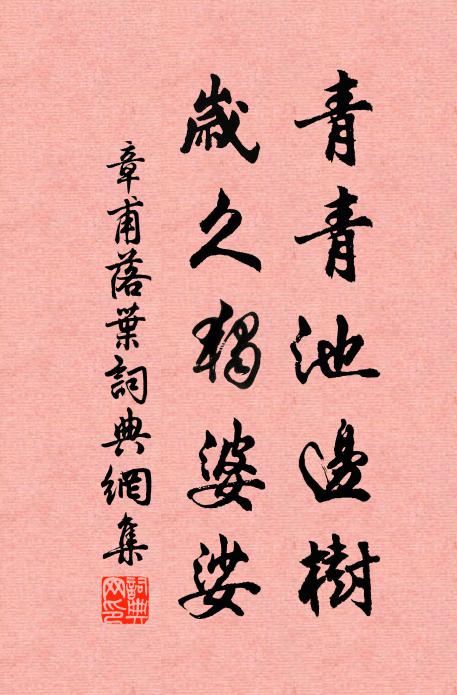 青青池邊樹
歲久獨婆娑
章甫落葉詞典網集
詞典網印